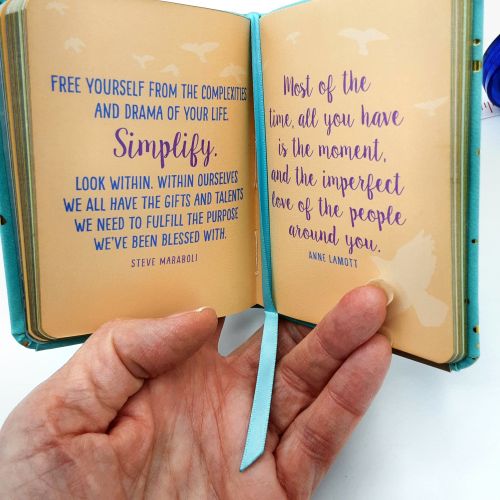 FREE YOURSELF FROM THE COMPLEXITIES
AND DRAMA OF YOUR LIFE.
Simplify.
LOOK WITHIN. WITHIN OURSELVES
WE ALL HAVE THE GIFTS AND TALENTS
WE NEED TO FULFILL THE PURPOSE
WE'VE BEEN BLESSED WITH.
STEVE MARABOLI
Most of the
time, all you have
is the moment,
and the imperfect
love of the people
around you.
ANNE LAMOTT